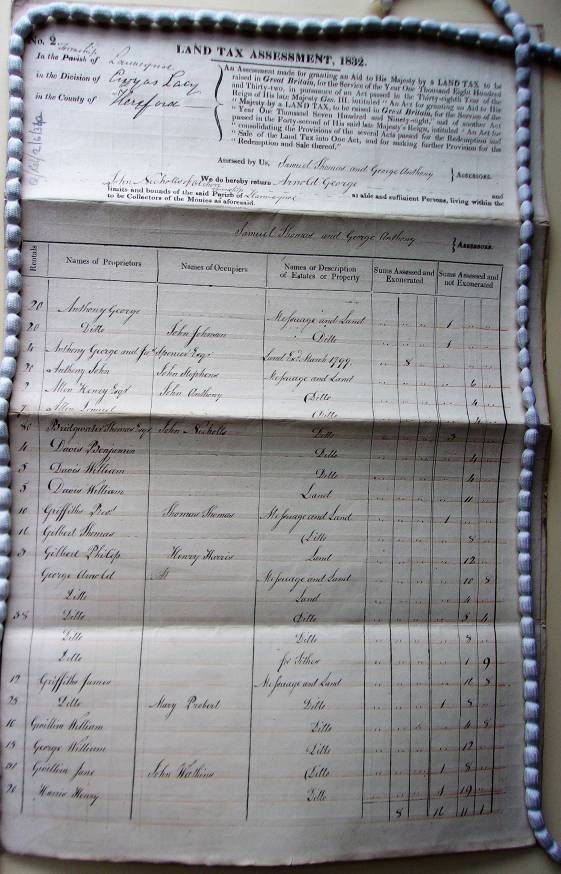 No. 2
LAND TAX ASSESSMENT, 1832.
In the Parish of Township
in the Division of Ewyas Lacy
in the County of Hereford
An Assessment made for granting an Aid to His Majesty by a LAND TAX, to be
raised in Great Britain, for the Service of the Year One Thousand Eight Hundred
and Thirty-two, in pursuance of an Act passed in the Thirty-eighth Year of the
Reign of His late Majesty Geo. III. intituled "An Act for granting an Aid to His
"Majesty by a LAND TAX, to be raised in Great Britain, for the Service of the
"Year One Thousand Seven Hundred and Ninety-eight," and of another Act
passed in the Forty-second of His said late Majesty's Reign, intituled "An Act for
consolidating the Provisions of the several Acts passed for the Redemption and
"Sale of the Land Tax into One Act, and for making further Provision for the
"Redemption and Sale thereof."
Assessed by Us, Samuel Thomas and George Anthony ASSESSORS.
John Nicholls We do hereby return Arnold George and
limits and bounds of the said Parish of Township as able and sufficient Persons, living within the
to be Collectors of the Monies as aforesaid.
Samuel Thomas and George Anthony ASSESSORS.
Rentals Names of Proprietors Names of Occupiers Names or Description of Estates or Property Sums Assessed and Exonerated Sums Assessed and not Exonerated
20 Anthony George Messuage and Land 1
20 Ditto John Johnson Ditto 1
4 Anthony George and Spencer Esqr Land Exd. March 1799 8
Anthony John John Stephens Messuage and Land
Allen Henry Esqr John Anthony Ditto 4
7 Allen Ditto 4
80 Bridgwater Thomas Esqr John Nicholls Ditto 3
4 Davis Benjamin Ditto 4
5 Davis William Ditto 4
5 Davis William Land 11
10 Griffiths Thomas Thomas Messuage and Land 1
16 Gilbert Thomas Ditto 8
Gilbert Philip Henry Harris Land 12
George Arnold Messuage and Land 10 8
Ditto Land 4
38 Ditto Ditto 5 4
Ditto Ditto 8
Ditto for Tithes 1 9
12 Griffiths James Messuage and Land 16 8
25 Ditto Mary Probert Ditto 1 8
16 Gwillim William Ditto 4 8
15 George William Ditto 12
Gwillim Jane John Watkins Ditto 1 8
Harris Henry Ditto 1 19
8 16 11 1